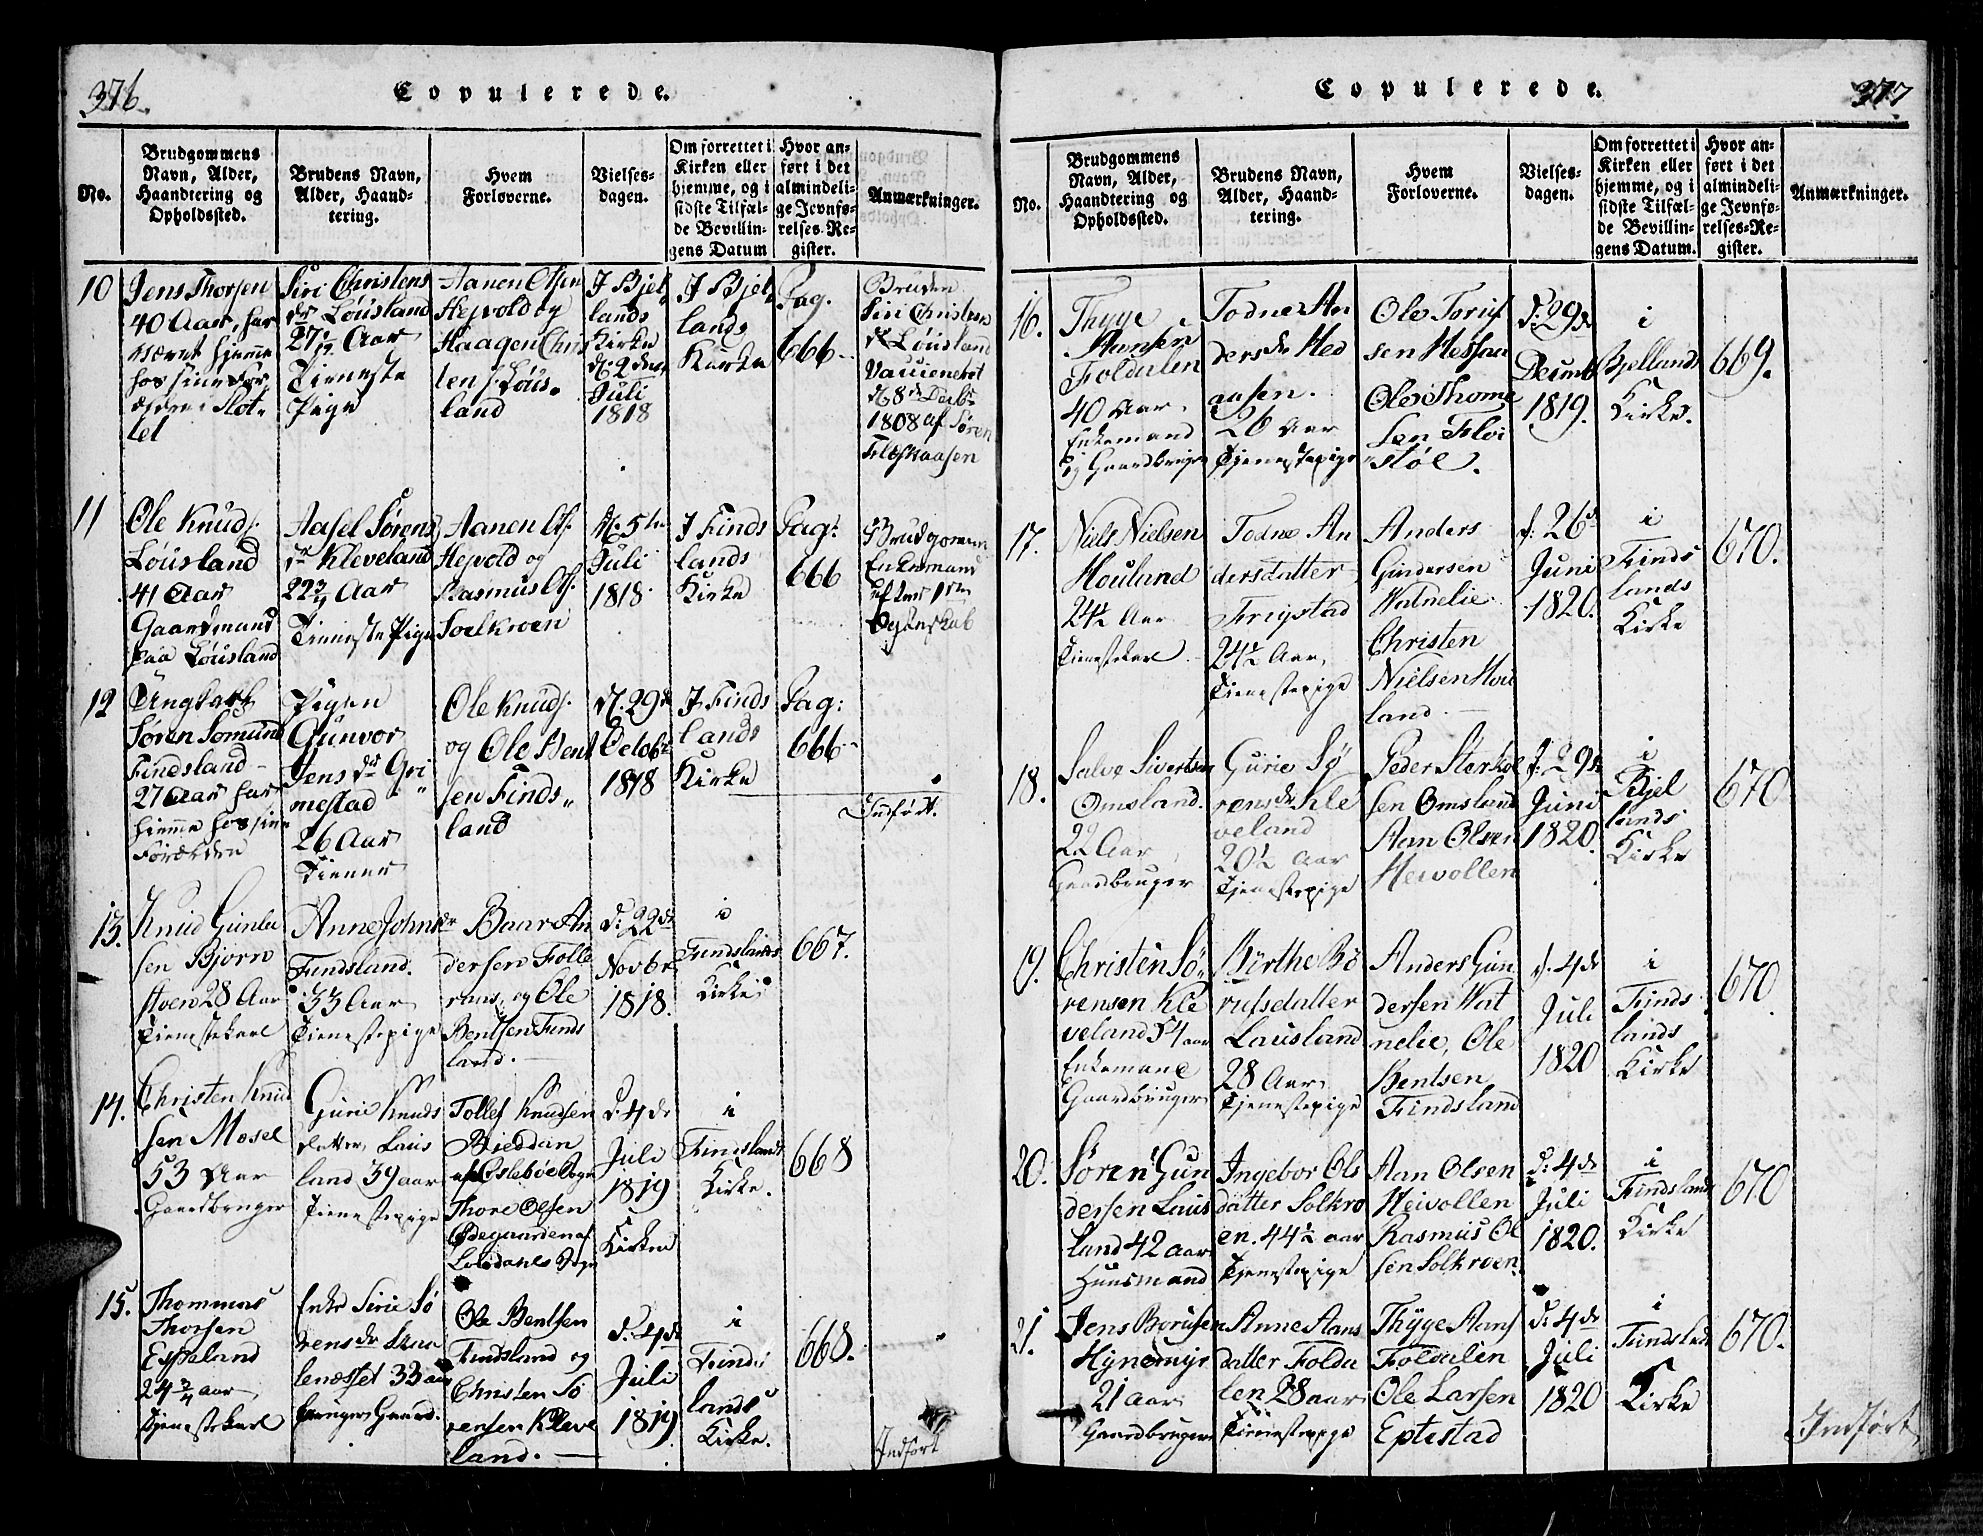 376.
Copulerede.
No.
Brudgommens
Navn, Alder,
Haandtering og
Opholdssted.
Brudens Navn,
Alder, Haand-
tering.
Hvem
Forloverne.
Vielses-
dagen.
Om forrettet i
Kirken eller
hjemme, og i
sidste Tilfæl-
de Bevillin-
gens Datum
Hvor an-
ført i det
almindeli-
ge Jevnfø-
relses-Re-
gister.
Anmærkninger.
10
Jens Thorsen
40 Aar, har
været hjemme
hos sine For
ældre i Slot-
let
Siri Christens
dr Løusland
Aar
Tieneste
Pige
Aanen Olsen
Hejvold og
Haagen Chris
ten s. Løus-
land
I Bjel
lands
Kirke
d. 2den
Juli
1818
I Bjel
lands
Kirke
Pag.
666
Bruden
Siri Christen
dr Løusland
Vaccineret
d 8de Decbr
1808 af Søren
11
Ole Knuds.
Løusland
41 Aar
Gaardmand
paa Løusland
Aasel Sørens
dr Kleveland
22 3/4 Aar
Tieneste Pige
Aanen Ols.
Hejvold og
Rasmus Ols.
Soelkroen
d. 5te
Juli
1818
I Finds
lands
Kirke
Pag:
666
Brudgommen
Enkemand
efter 1ste
Egteskab
12
Ungkarl
Søren Somund
Findsland
27 Aar har
hiemme hos sine
Forældre
Pigen
Gunvor
Jens dr Gri
mestad
26 Aar
Tiener
Ole Knuds.
og Ole Bent
sen Finds
land
d. 29de
Octobr
1818
I Finds
lands
Kirke
Pag:
666
Indført.
13.
Knud Gunle
sen Bjorn
stven 28 Aar
Tienestekarl
Anne Johns dr
Findsland.
33 Aar
Tienestepige
Baar An
dersen Folle
raas, og Ole
Bentsen Finds
land.
d: 22de
Novbr
1818.
i
Findslands
Kirke
667.
14.
Christen Knud
sen Mosel
53 Aar
Gaardbruger
Gurie Knuds
datter Laus
land 39 aar
Tienestepige
Tollef Knudsen
Bieddan
af Oslebøe Sogn
Thore Olsen
Ødegaarden af
Sogn
d. 4de
Juli
1819
Kirken
i
Findslands
Kirke.
668
15.
Thommas
Thorsen
Espeland
24 3/4 aar
Tjenestekarl
Enke Sirie Sø
rensdr
33 aar
bruger Gaard.
Ole Bentsen
Findsland og
Christen Sø
rensen Kleve
land.
d. 4de
Juli
1819
i
Finds
lands
Kirke.
668.
Indført
Copulerede.
377
No.
Brudgommens
Navn, Alder,
Haandtering og
Opholdssted.
Brudens Navn,
Alder, Haand-
tering.
Hvem
Forloverne.
Vielses-
dagen.
Om forrettet i
Kirken eller
hjemme, og i
sidste Tilfæl-
de Bevillin-
gens Datum.
Hvor an-
ført i det
almindeli-
ge Jevnfø-
relses-Re-
gister.
Anmærkninger.
16.
Thyge
Hansen
Foldalen
40 Aar
Enkemand
og Gaardbruger
Todne An
dersdr Hed
aasen.
26 Aar
Tjenestepige
Ole Toris
sen Hessaa
Ole Thome
sen Fløi
støl.
d: 29de
Decemb
1819.
i
Bjellands
Kirke.
669.
17.
Niels Nielsen
Houland
24½ Aar
Tienestekarl
Todne An
dersdatter
Frigstad
24½ Aar,
Tienestepige
Anders
Gundersen
Vatnelie
Christen
Nielsen Hou
land
d: 26de
Juni
1820.
i
Finds
lands
Kirke
670.
18.
Salve Sivertsen
Omsland.
22 Aar
Gaardbruger
Gurie Sø
rens dr Kle
veland
20½ Aar
Tjenestepige
Peder Sterkol
sen Omsland
Aan Olsen
Heivollen
d. 29de
Juni
1820.
i
Bjel
lands
Kirke
670
19.
Christen Sø
rensen Kle
veland 54 aar
Enkemand
Gaardbruger
Birthe Bø
rufsdatter
Lausland
28 Aar,
Tjenestepige
Anders Gun
dersen Vat
nelie, Ole
Bentsen
Findsland
d. 4de
Juli
1820
i
Finds
lands
Kirke
670
20.
Søren Gun
dersen Laus
land 42 aar
Huusmand
Ingebor Ols
datter Solkro
en. 44½ aar
Tjenestepige
Aan Olsen
Heivollen
Rasmus Ol
sen Solkroen.
d: 4de
Juli
1820.
i
Findslands
Kirke
670
21.
Jens Borusen
Hynemyr
21 aar
Gaardbruger
Anne Aans
datter Folda
len 28 aar
Tienestepige
Thyge Hans
Foldalen
Ole Larsen
Eptestad
d: 4de
Juli
1820
i
Findsland
Kirke
670.
Indført